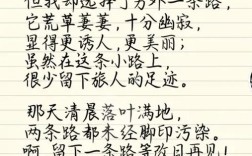 但我却选择了另外一条路，
它荒草萋萋，十分幽寂，
显得更诱人，更美丽；
虽然在这条小路上，
很少留下旅人的足迹。
那天清晨落叶满地，
两条路都未经脚印污染。
啊，留下一条路等改日再见！